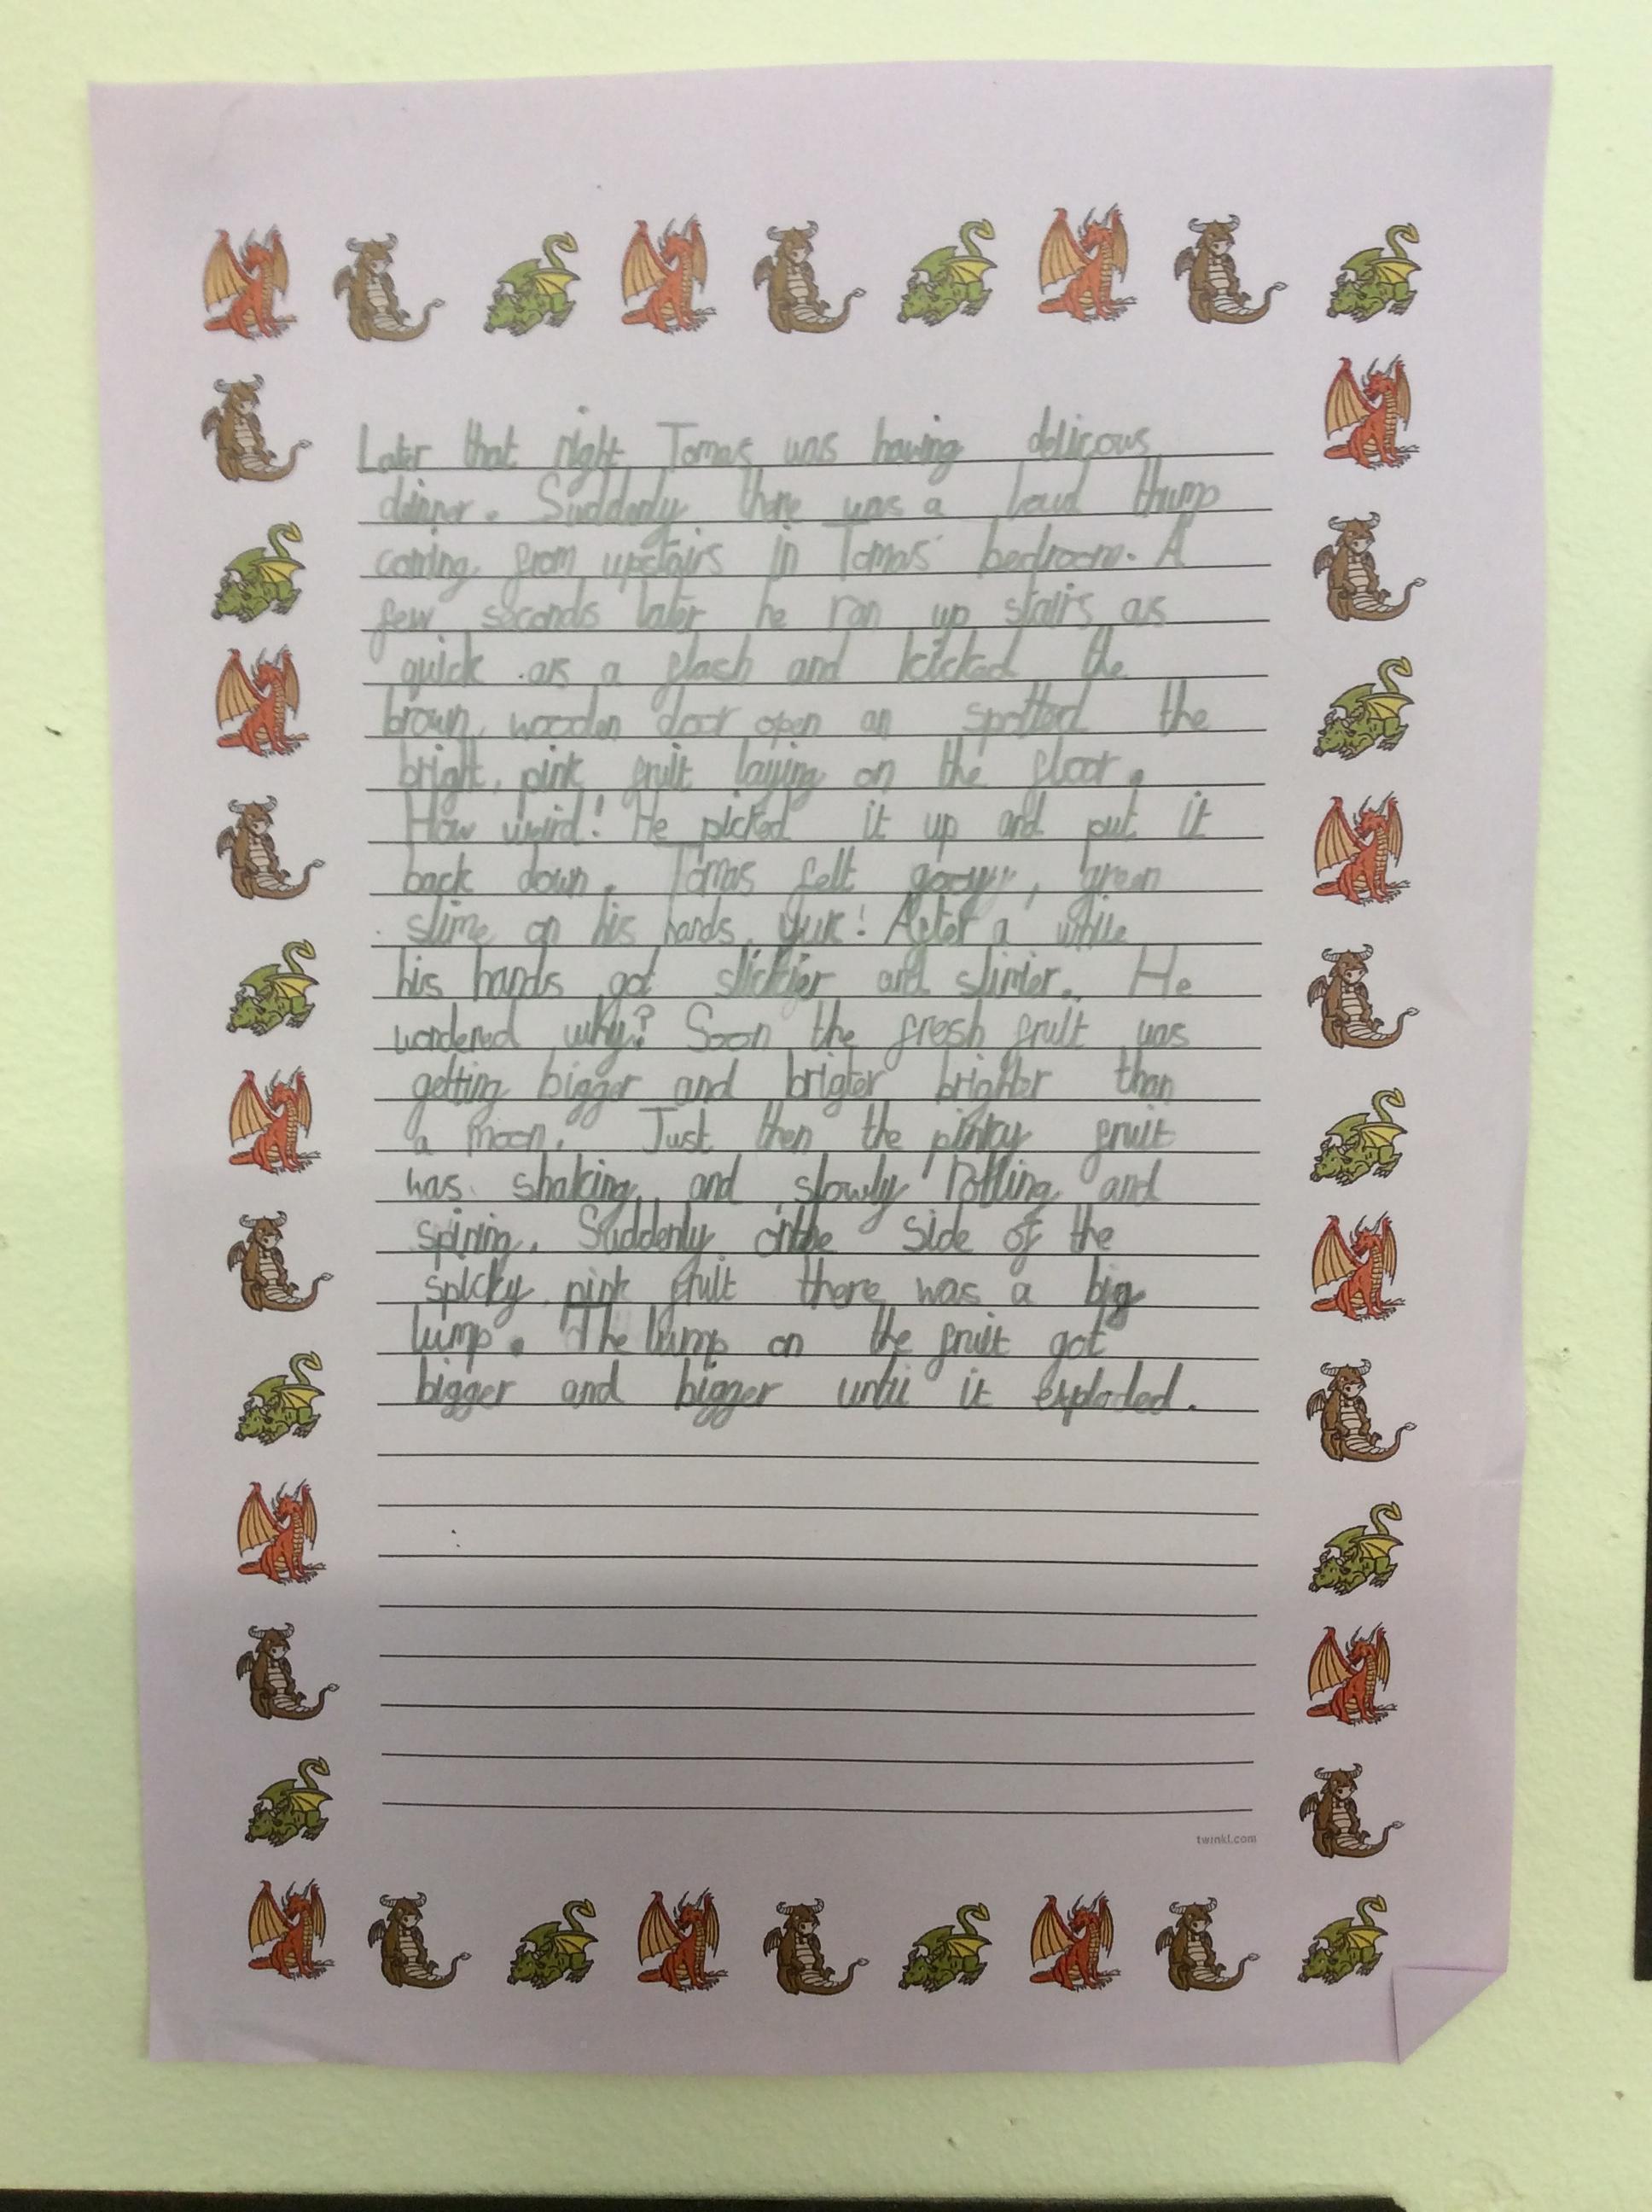 Later that night Tomas was having delicous
dinner. Suddenly there was a loud thump
coming from upstairs in Tomas' bedroom. A
few seconds later he ran up stairs as
quick as a flash and kicked the
brown, wooden door open an spotted the
bright, pink fruit laying on the floor.
How weird! He picked it up and put it
back down. Tomas felt gooyy, green
slime on his hands, yuk! After a while
his hands got slickier and slimier. He
wondered why? Soon the fresh fruit was
getting bigger and brigter brighter than
a moon. Just then the pinky fruit
was shaking and slowly rolling and
spining. Suddenly on the side of the
spicky, pink fruit there was a big
lump. The lump on the fruit got
bigger and bigger until it exploded.
twinkl.com